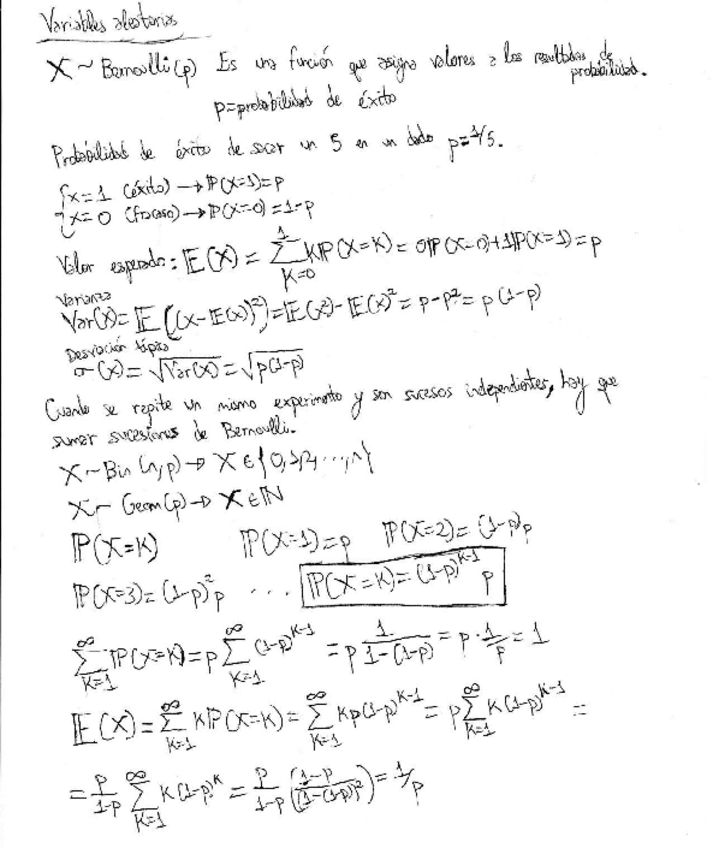 Variables aleatorias
X ~ Bernoulli(p) Es una función que asigna valores a los resultados de probabilidad.
p=probabilidad de éxito
Probabilidad de éxito de sacar un 5 en un dado p=1/5.
{x=1 (éxito) → P(X=1)=p
{x=0 (fracaso) → P(X=0)=1-p
Valor esperado: E(X) = Σ_{K=0}^{1} K P(X=K) = 0P(X=0)+1P(X=1) = p
Varianza
Var(X) = E((X-E(X))²) = E(X²)-E(X)² = p-p² = p(1-p)
Desviación típica
σ(X) = √Var(X) = √p(1-p)
Cuando se repite un mismo experimento y son sucesos independientes, hay que
sumar sucesiones de Bernoulli.
X ~ Bin(n,p) → X ∈ {0,1,2,...,n}
X ~ Geom(p) → X ∈ N
P(X=K) P(X=1)=p P(X=2)=(1-p)p
P(X=3)=(1-p)²p ... P(X=K)=(1-p)^{K-1} p
Σ_{K=1}^{∞} P(X=K) = p Σ_{K=1}^{∞} (1-p)^{K-1} = p 1/(1-(1-p)) = p · 1/p = 1
E(X) = Σ_{K=1}^{∞} K P(X=K) = Σ_{K=1}^{∞} K p(1-p)^{K-1} = p Σ_{K=1}^{∞} K(1-p)^{K-1} =
= p/(1-p) Σ_{K=1}^{∞} K(1-p)^K = p/(1-p) ((1-p)/(1-(1-p))²) = 1/p